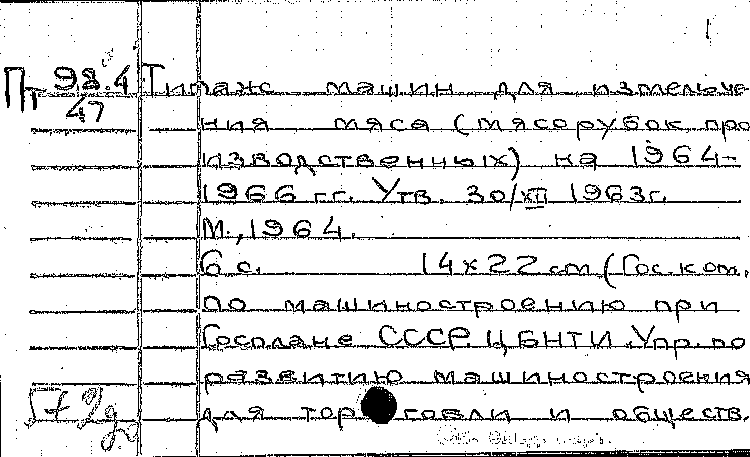 Пт 98.4 Типаж машин для измельче-
47
ния мяса (мясорубок про
изводственных) на 1964-
1966 гг. Утв. 30/XII 1963г.
М., 1964.
6 с. 14x22 см (Гос. ком.
по машиностроению при
Госплане СССР. ЦБНТИ. Упр. по
развитию машиностроения
для торговли и обществ.